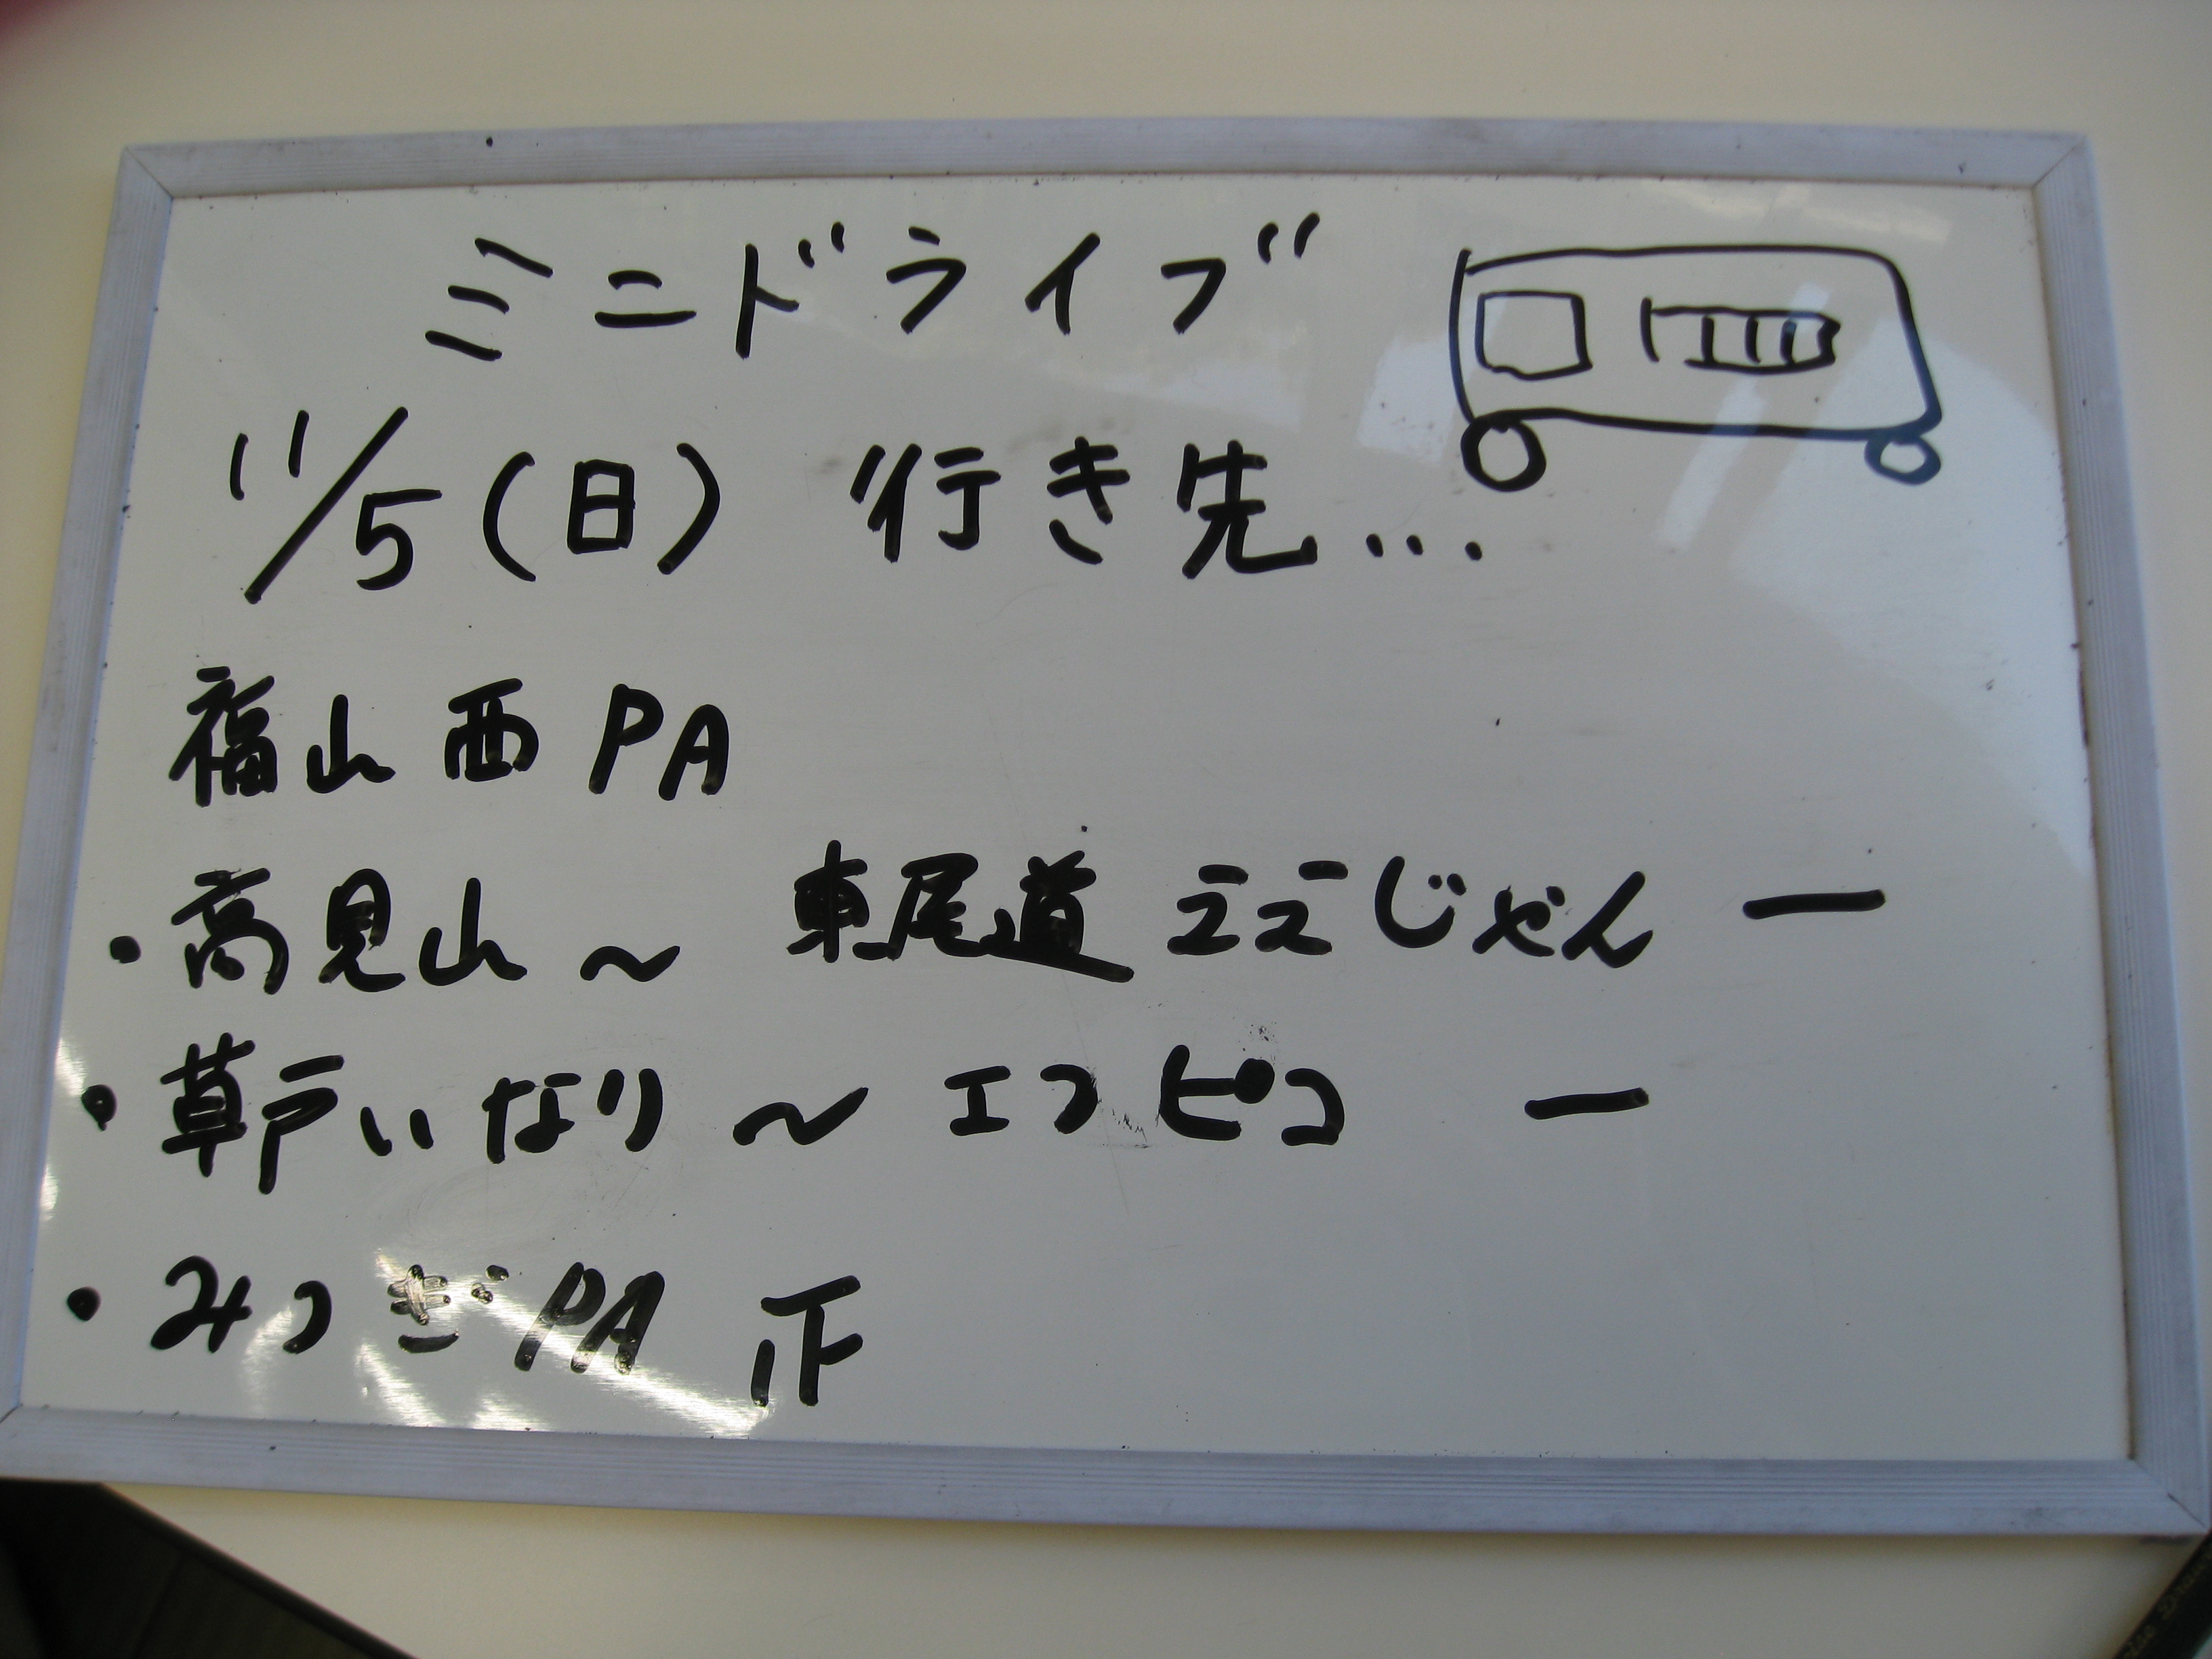 ミニドライブ
11/5(日) 行き先...
福山西PA
・高見山～ 東尾道ええじゃん 一
・草戸いなり～ エコピコ 一
・みつぎPA 正